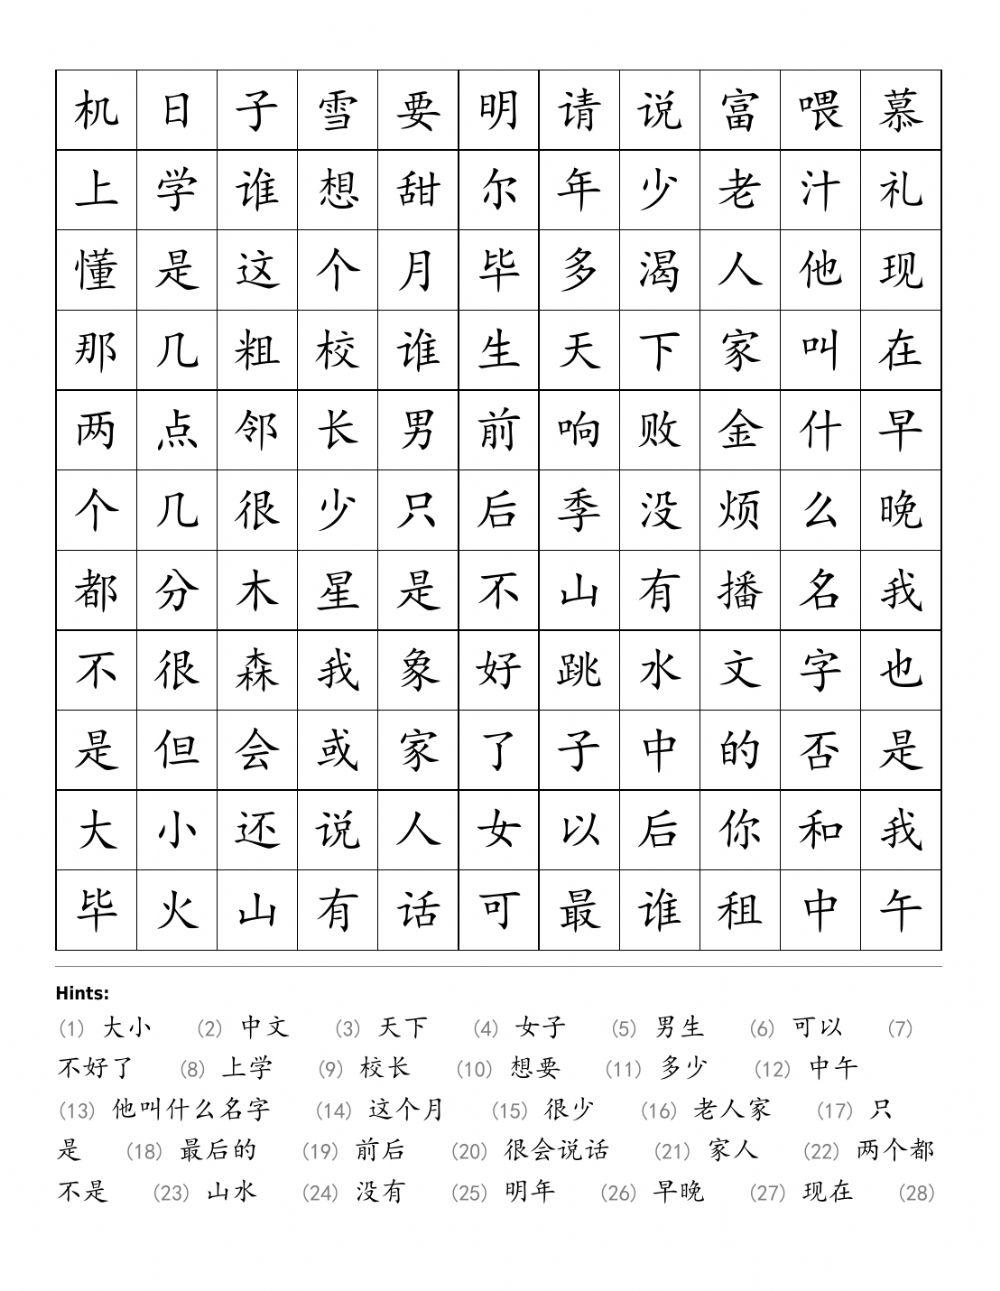 机 日 子 雪 要 明 请 说 富 喂 慕
上 学 谁 想 甜 尔 年 少 老 汁 礼
懂 是 这 个 月 毕 多 渴 人 他 现
那 几 粗 校 谁 生 天 下 家 叫 在
两 点 邻 长 男 前 响 败 金 什 早
个 几 很 少 只 后 季 没 烦 么 晚
都 分 木 星 是 不 山 有 播 名 我
不 很 森 我 象 好 跳 水 文 字 也
是 但 会 或 家 了 子 中 的 否 是
大 小 还 说 人 女 以 后 你 和 我
毕 火 山 有 话 可 最 谁 租 中 午
Hints:
(1) 大小 (2) 中文 (3) 天下 (4) 女子 (5) 男生 (6) 可以 (7)
不好了 (8) 上学 (9) 校长 (10) 想要 (11) 多少 (12) 中午
(13) 他叫什么名字 (14) 这个月 (15) 很少 (16) 老人家 (17) 只
是 (18) 最后的 (19) 前后 (20) 很会说话 (21) 家人 (22) 两个都
不是 (23) 山水 (24) 没有 (25) 明年 (26) 早晚 (27) 现在 (28)